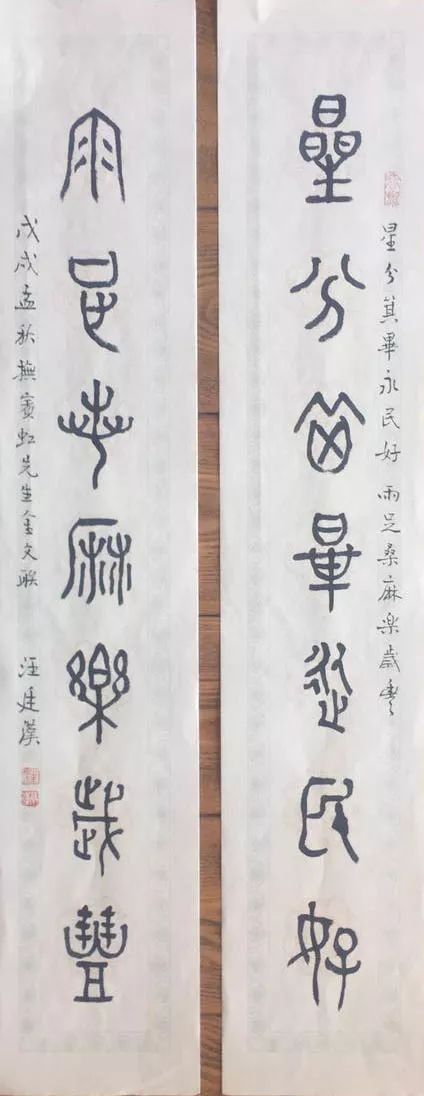 星分其畢永民好 雨足桑麻楽歲豊
星分箕畢從民好
雨足桑麻樂歲豐
戊戌孟秋撫賓虹先生金文聯 汪廷漢